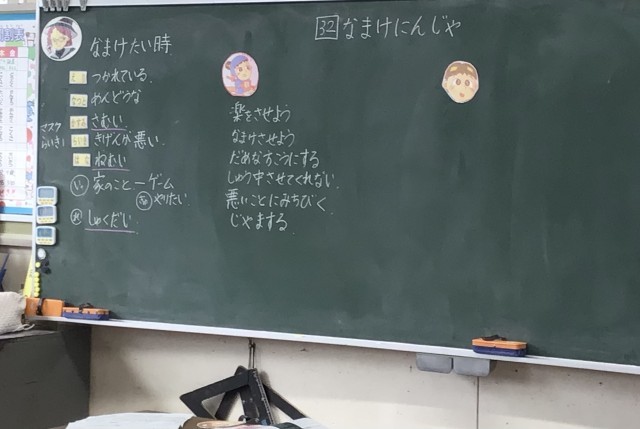 32 なまけにんじゃ
なまけたい時
つかれている。
めんどうな
さむい。
きげんが悪い。
ねむい
家のこと―ゲーム
やりたい。
しゅくだい
マスク
きらい!
楽をさせよう
なまけさせよう
だめなほうにする
しゅう中させてくれない。
悪いことにみちびく。
じゃまする。